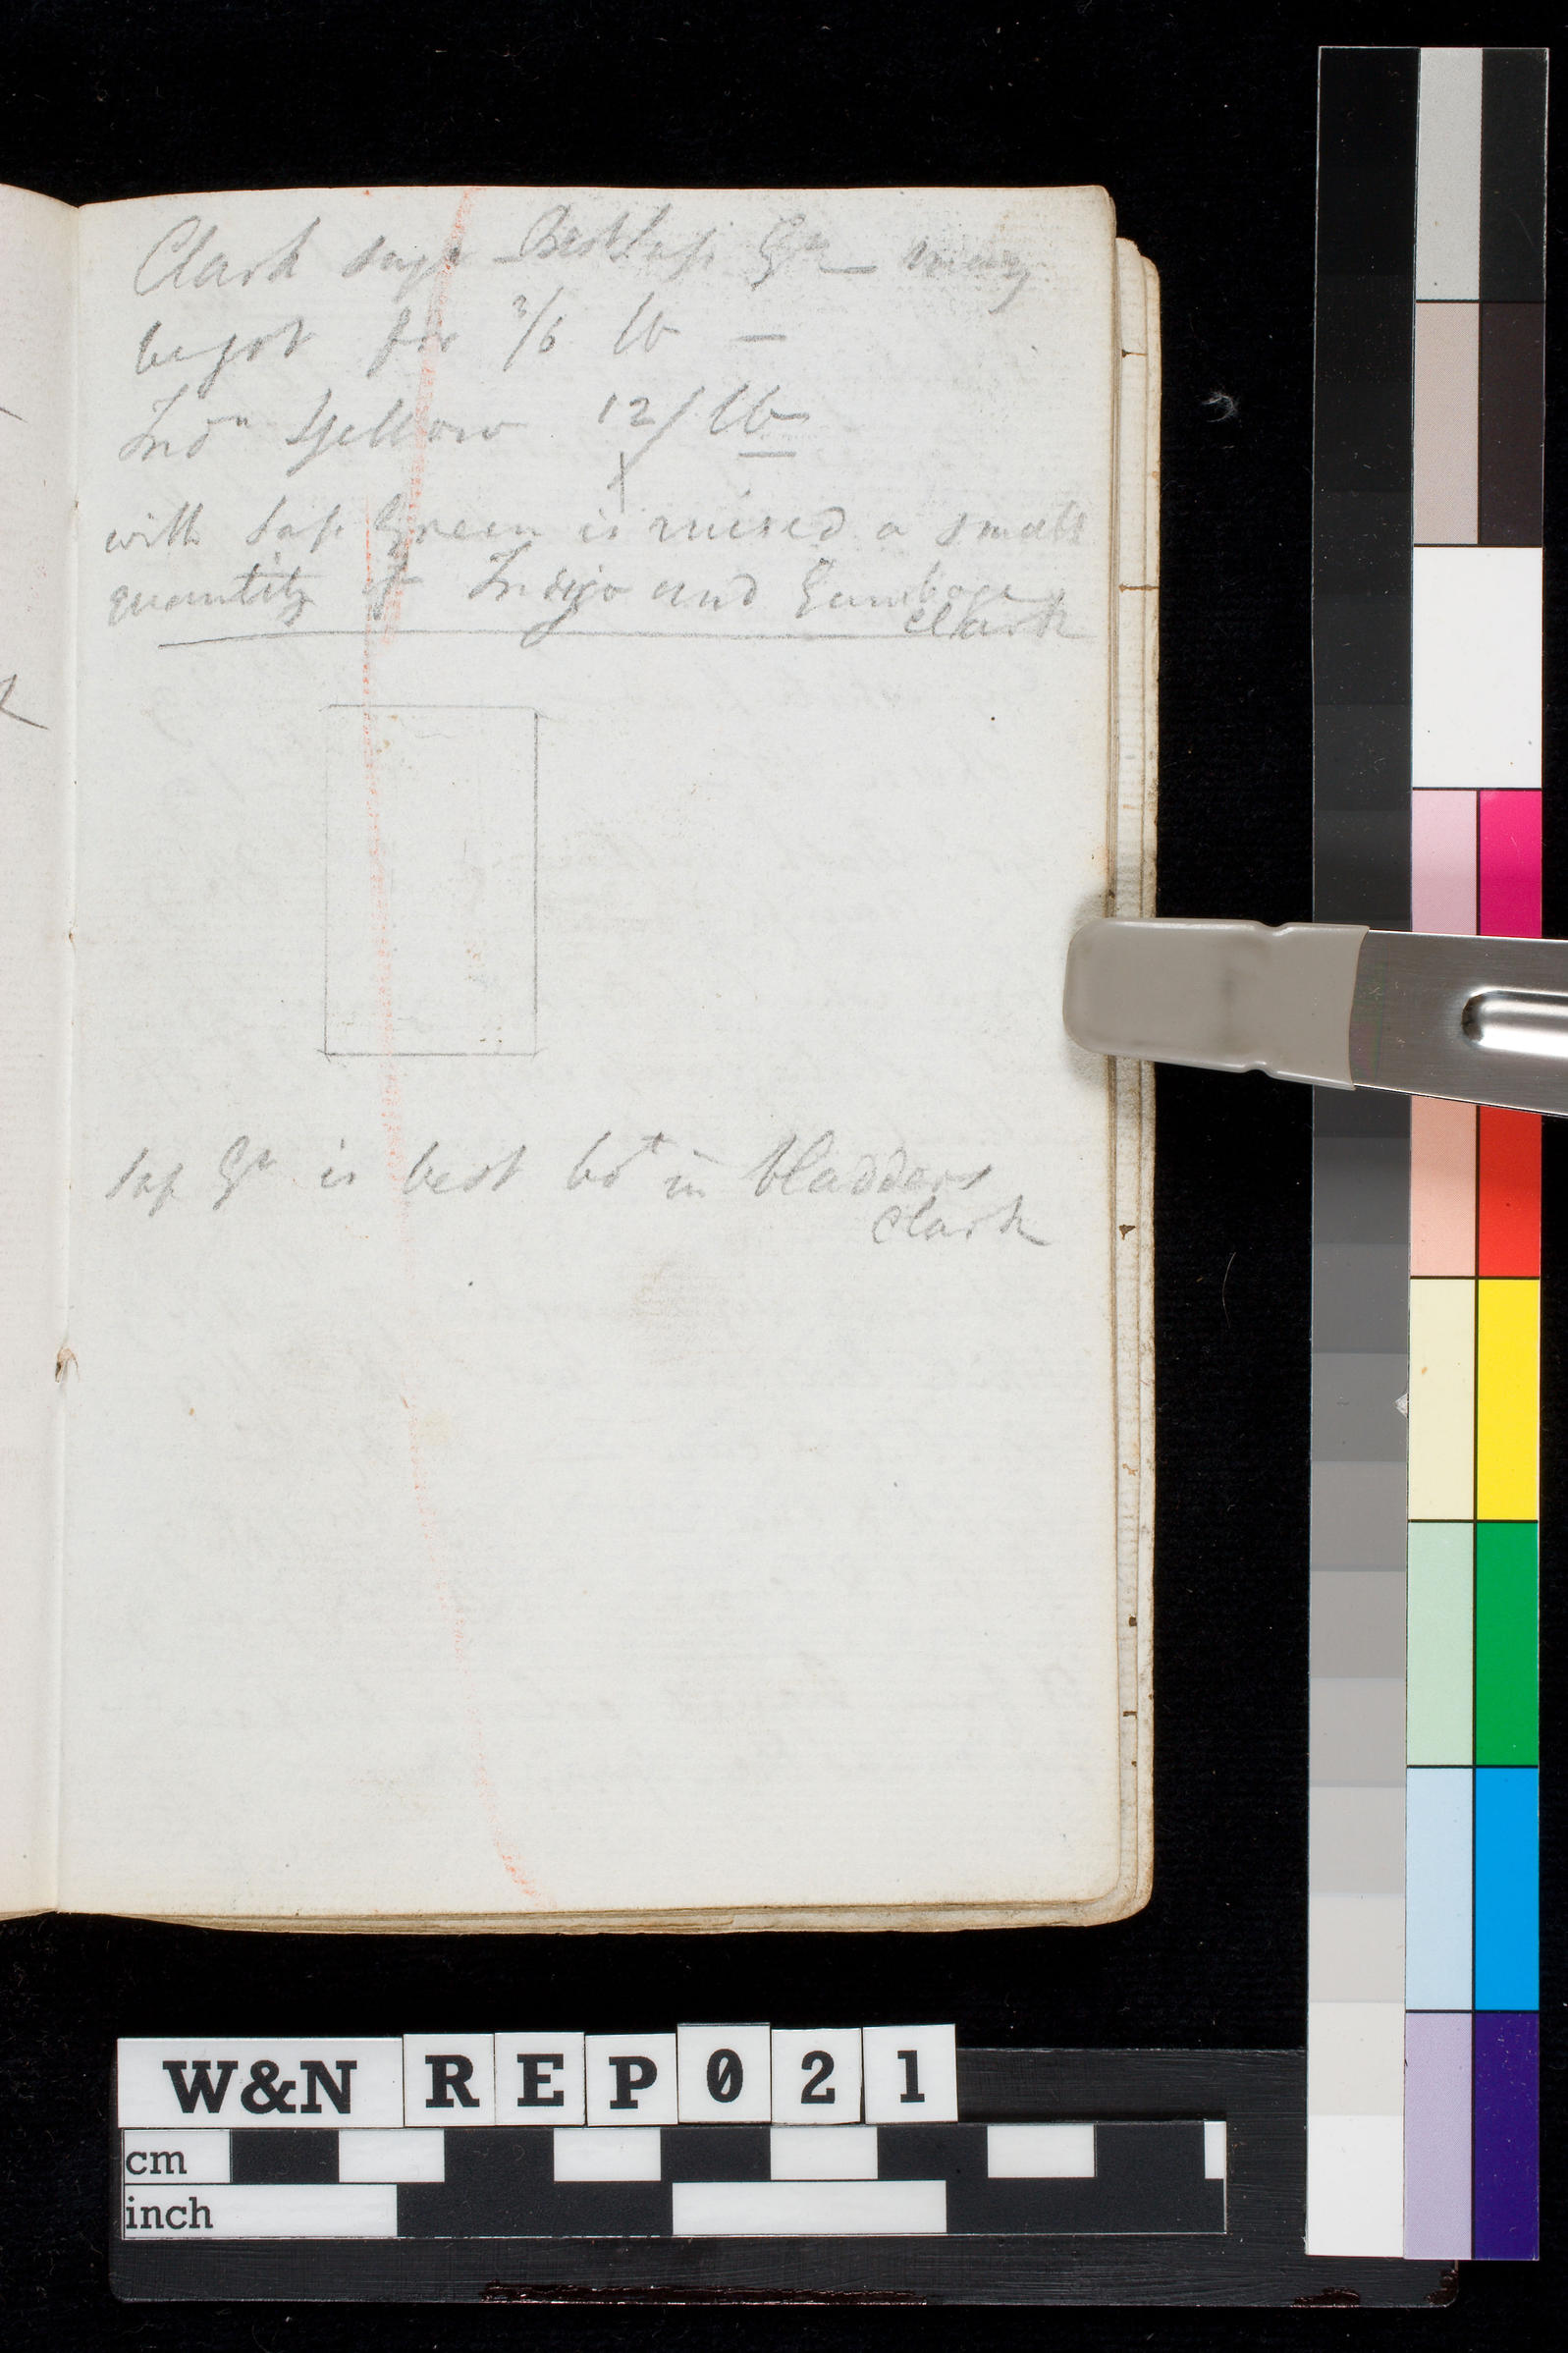 Clark says Best Sap Gn may
be got for 3/6 lb —
Indn Yellow 12/ lb
with Sap Green is mixed a small
quantity of Indigo and Gamboge
Clark
Sap Gn is best bot in bladders
Clark
W&N REP021
cm
inch